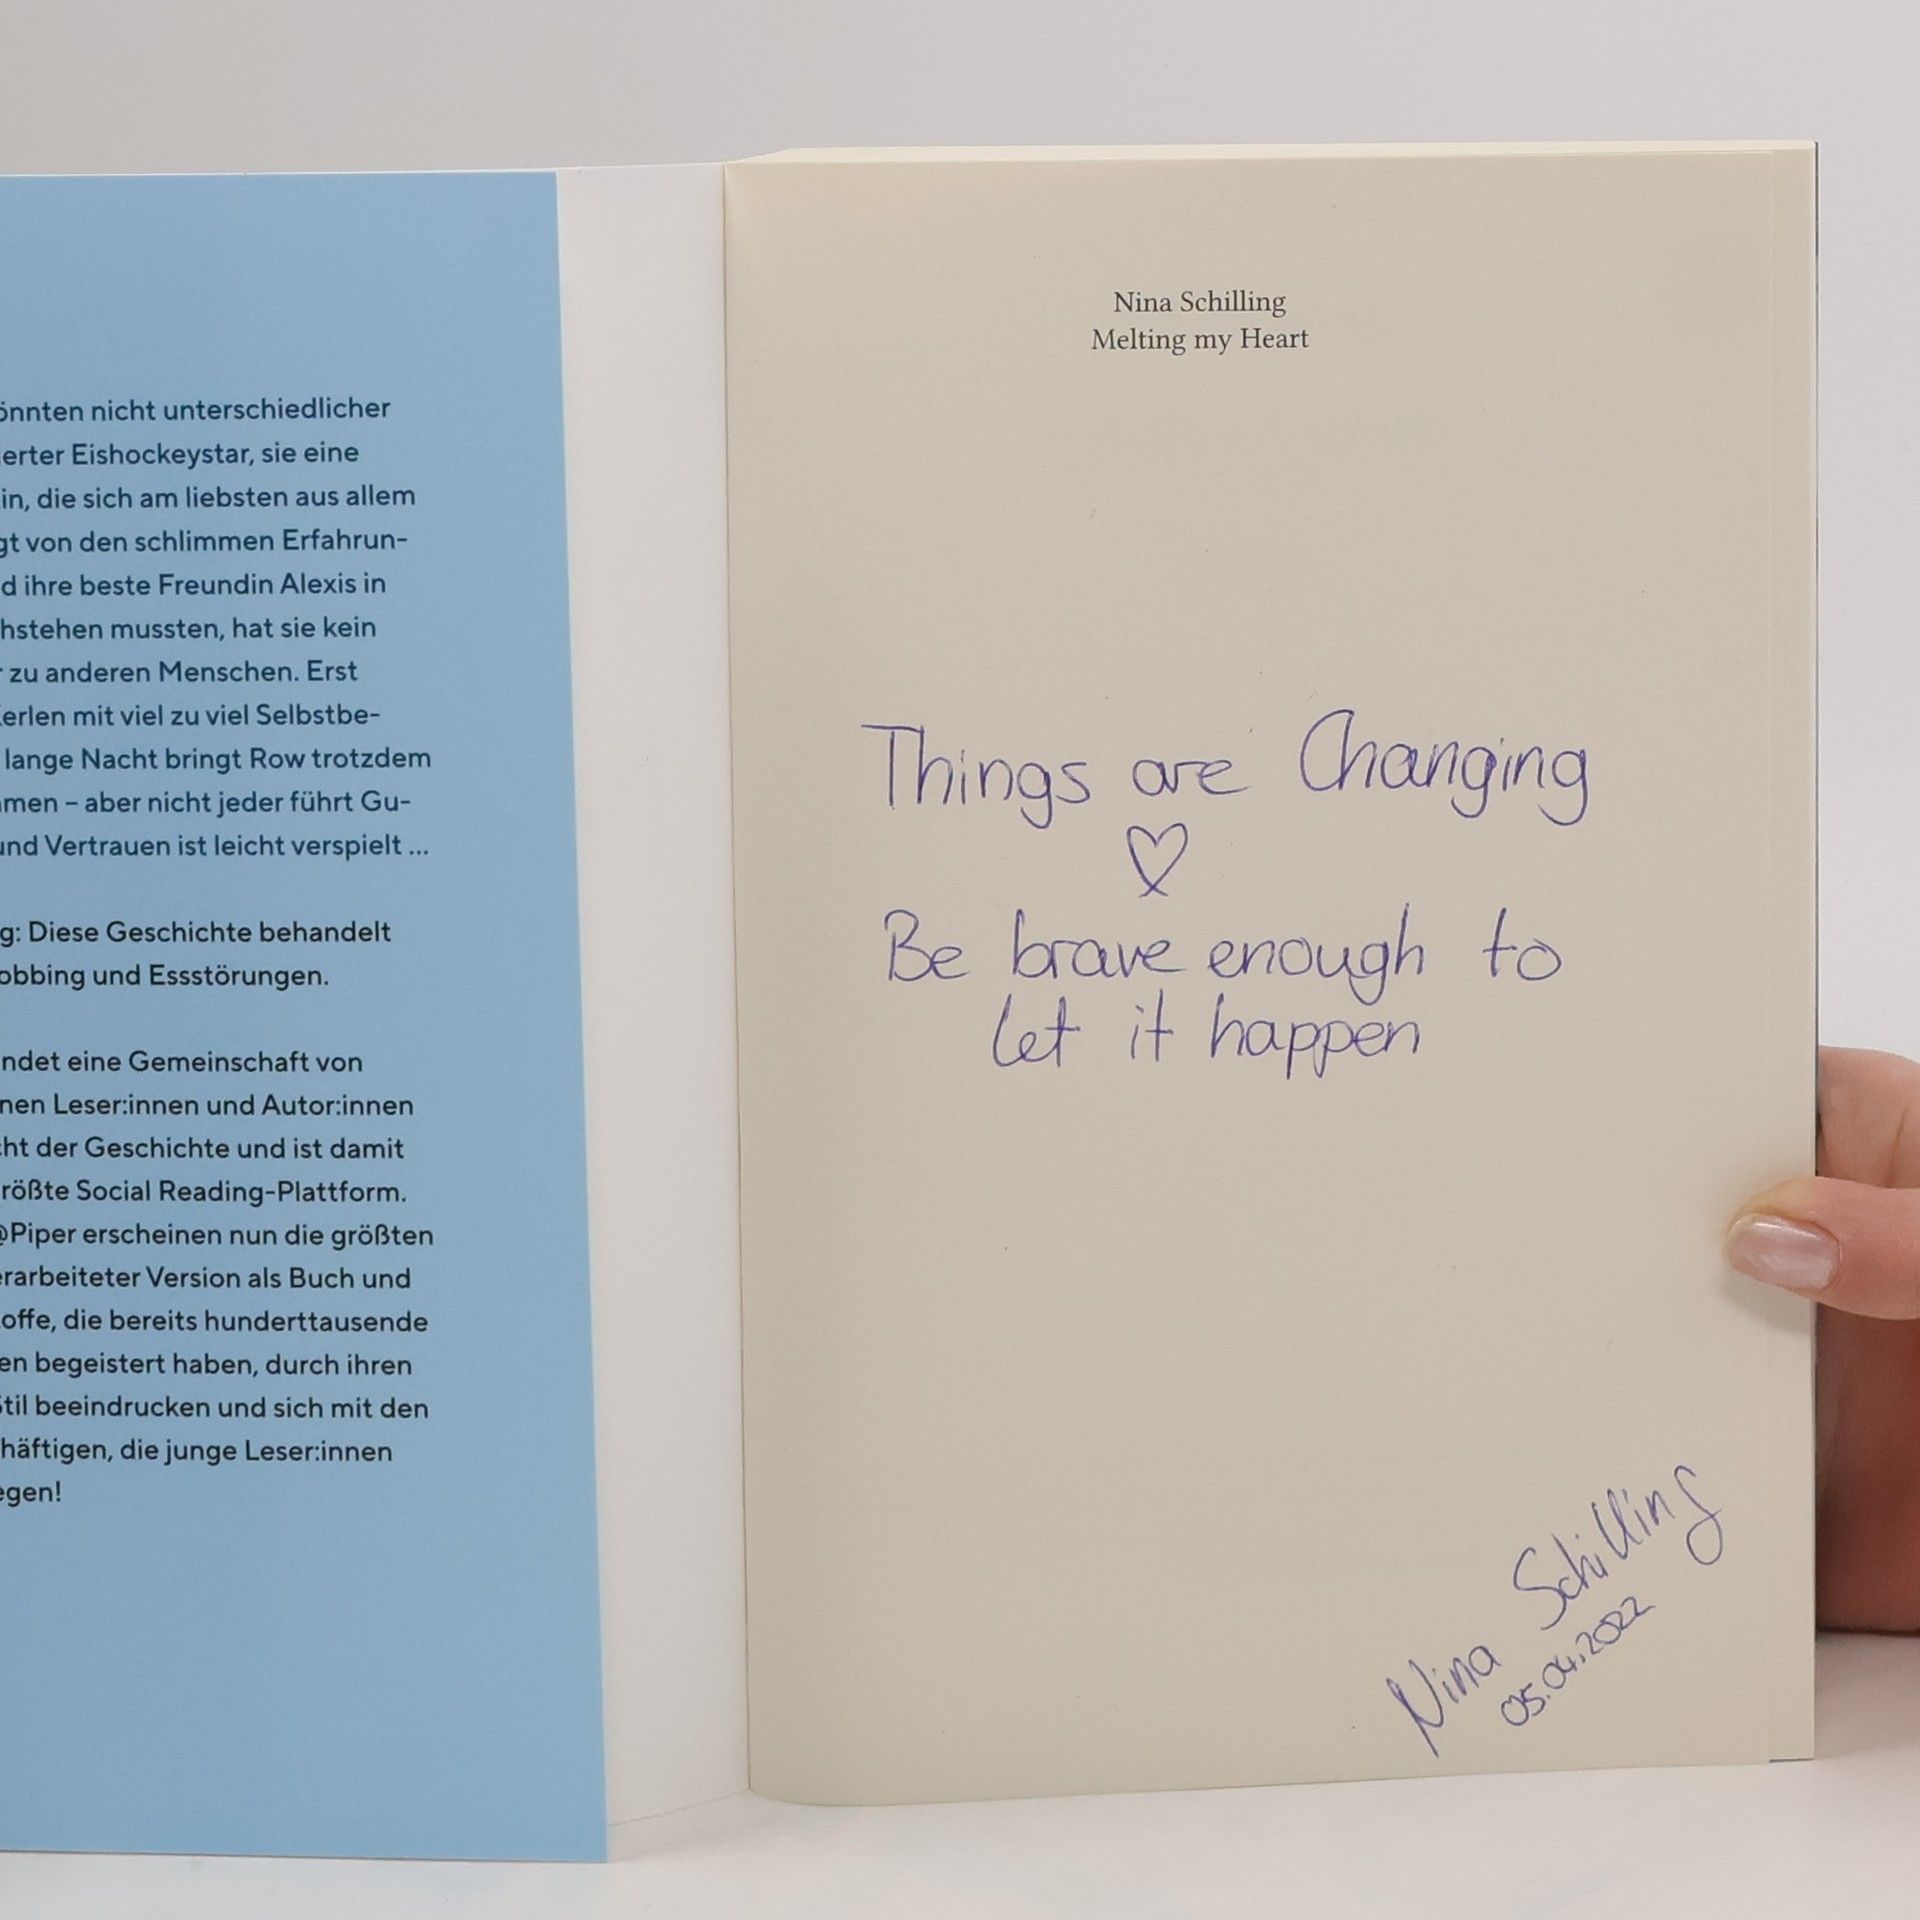 nicht unterschiedlicher
Eishockeystar, sie eine
die sich am liebsten aus allem
von den schlimmen Erfahrun-
ihre beste Freundin Alexis in
mussten, hat sie kein
zu anderen Menschen. Erst
mit viel zu viel Selbstbe-
lange Nacht bringt Row trotzdem
– aber nicht jeder führt Gu-
und Vertrauen ist leicht verspielt ...
Diese Geschichte behandelt
und Essstörungen.
eine Gemeinschaft von
Leser:innen und Autor:innen
der Geschichte und ist damit
Social Reading-Plattform.
@Piper erscheinen nun die größten
Version als Buch und
die bereits hunderttausende
begeistert haben, durch ihren
Stil beeindrucken und sich mit den
die junge Leser:innen
Nina Schilling
Melting my Heart
Things are Changing
♡
Be brave enough to
let it happen
Nina Schilling
05.04.2022